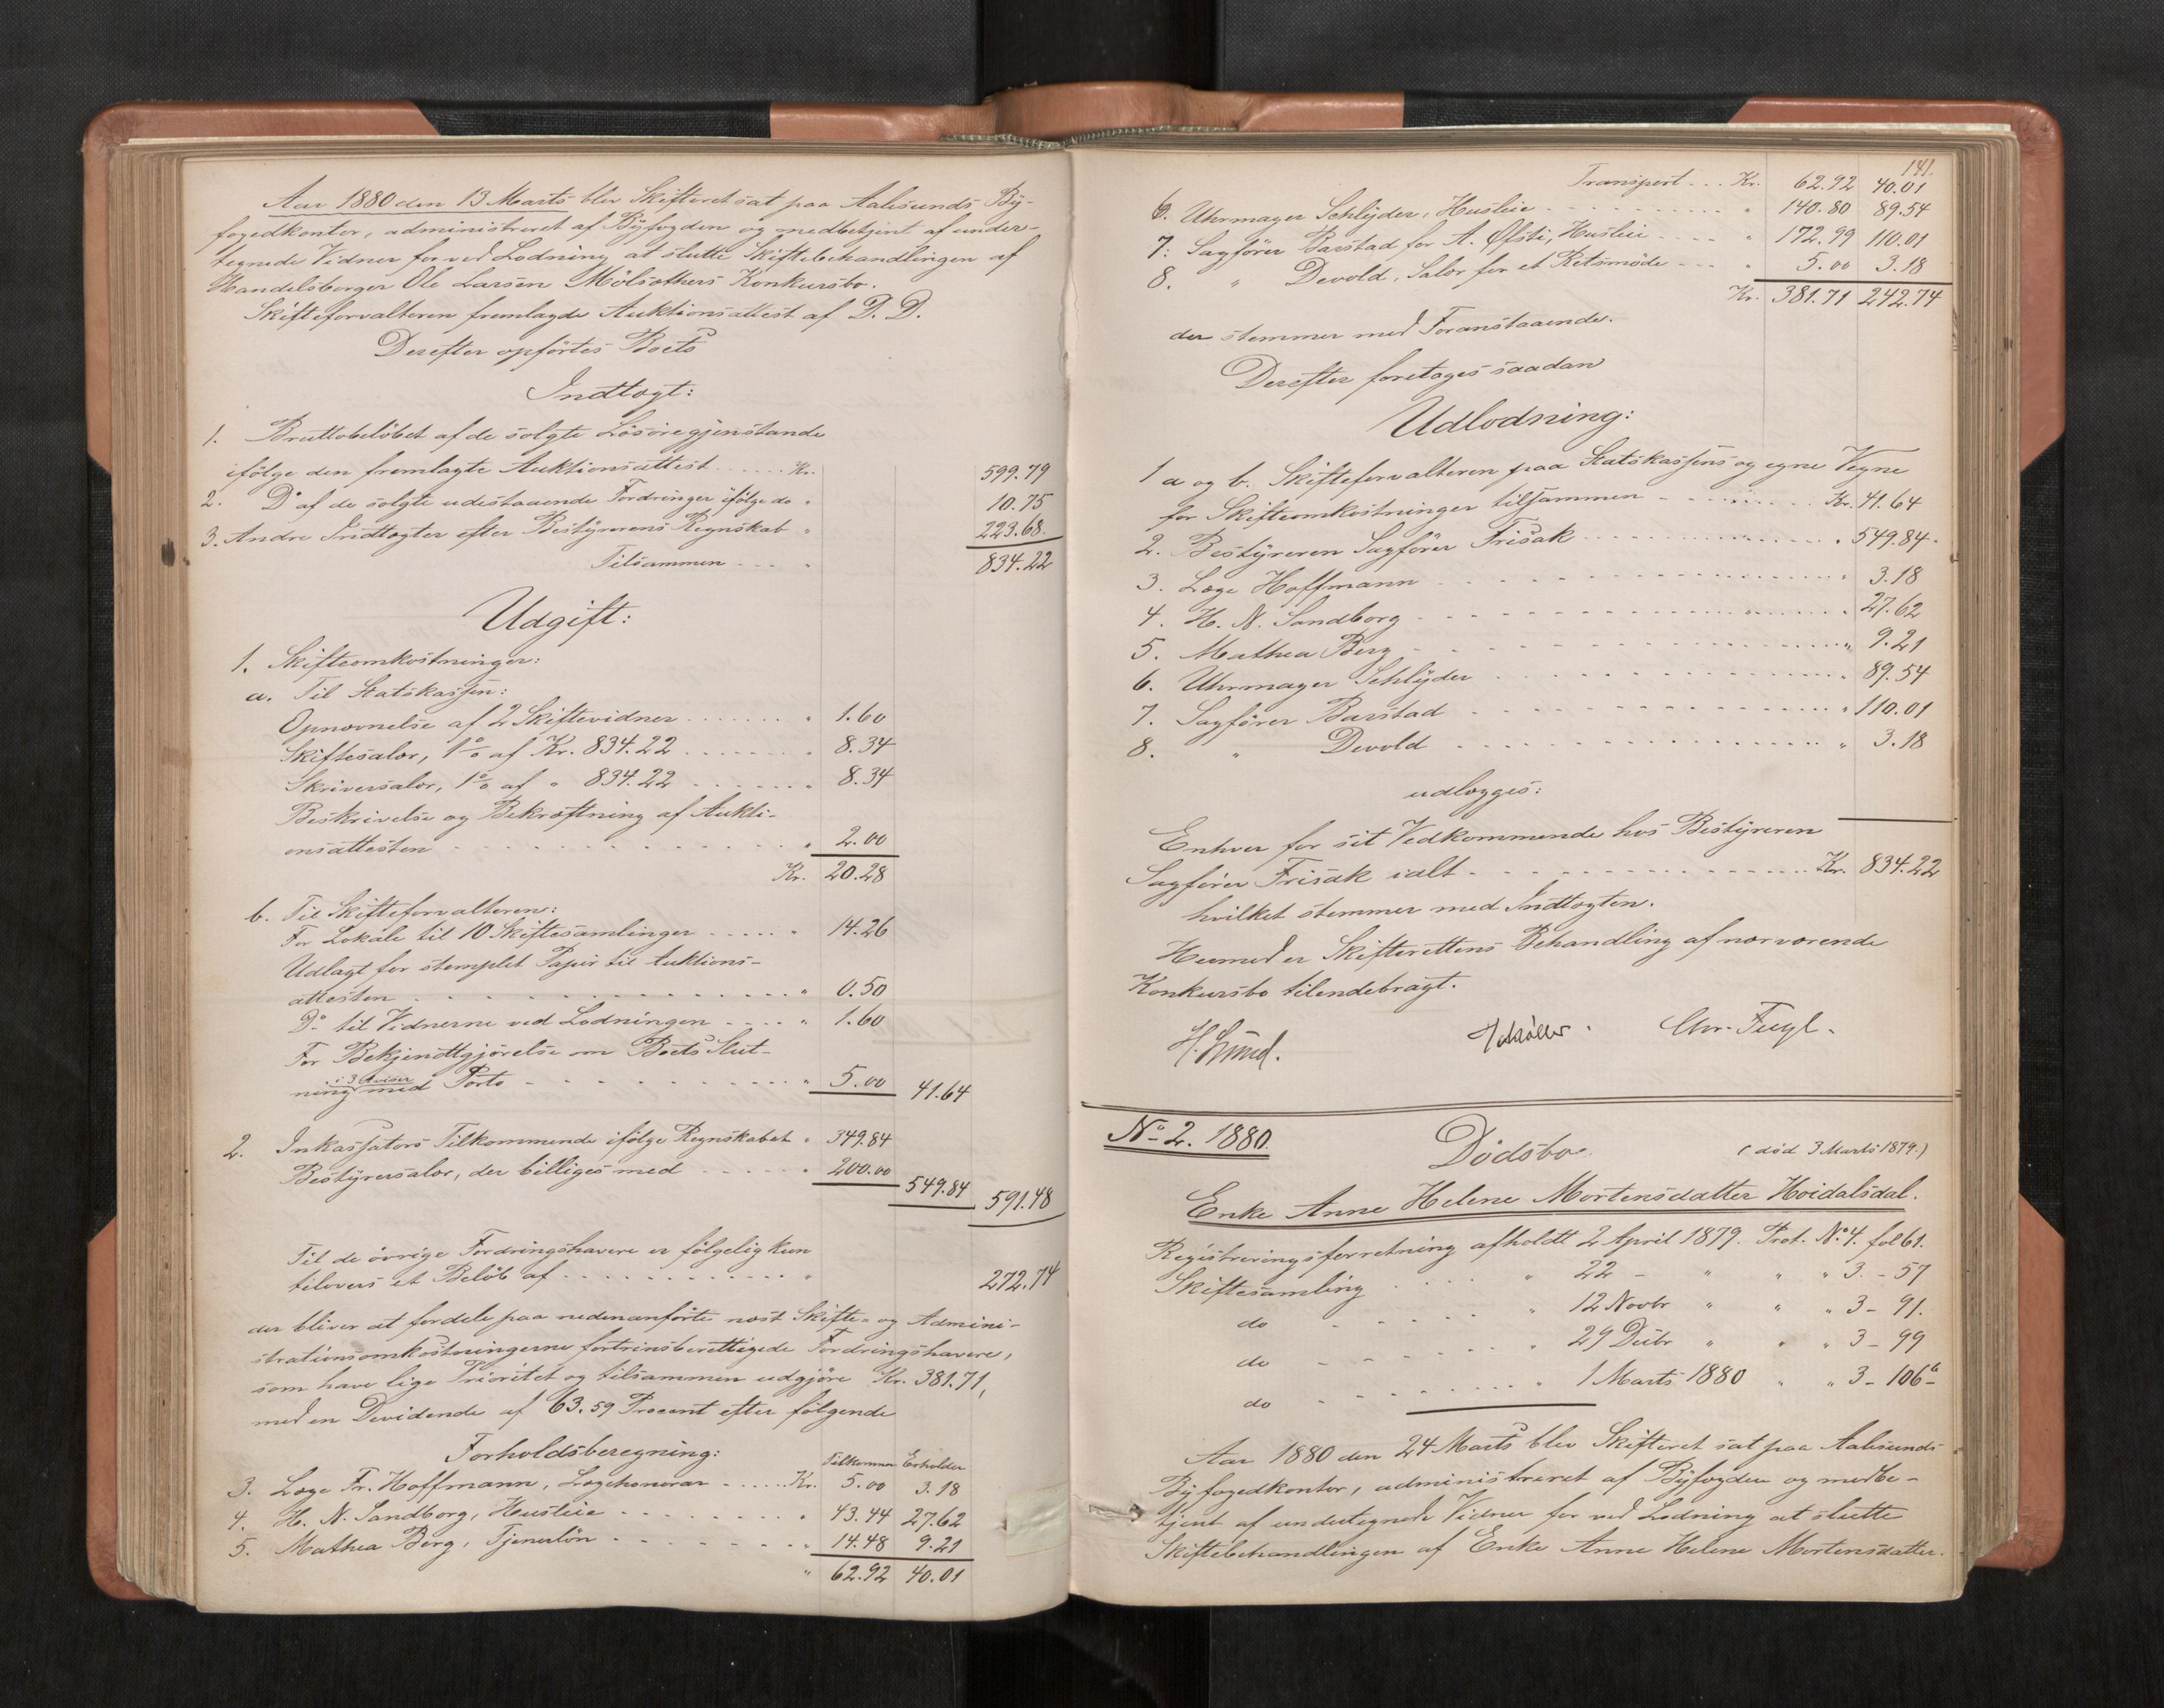 Aar 1880 den 13 Marts blev Skifteret sat paa Aalesunds By-
fogedkontor, administreret af Byfogden og medbetjent af under-
tegnede Vidner for ved Lodning at slutte Skiftebehandlingen af
Handelsborger Ole Larsen Mölsæthers Konkursbo.
Skifteforvalteren fremlagde Auktionsattest af D. D.
Derefter opførtes Boets
Indtægt:
1. Bruttobelöbet af de solgte Lösöregjenstande
ifölge den fremlagte Auktionsattest Kr. 599.79
2. Do af de solgte udestaaende Fordringer ifölge do " 10.75
3. Andre Indtægter efter Bestyrerens Regnskab " 223.68.
Tilsammen " 834.22
Udgift:
1. Skifteomkostninger:
a. Til Statskassen:
Opnævnelse af 2 Skiftevidner " 1.60
Skiftesalær, 1% af Kr. 834.22 " 8.34
Skriversalær, 1% af " 834.22 " 8.34
Beskrivelse og Bekræftning af Aukti-
onsattesten " 2.00
Kr. 20.28
b. Til Skifteforvalteren:
For Lokale til 10 Skiftesamlinger " 14.26
Udlagt for stemplet Papir til Auktions-
attesten " 0.50
Do til Vidnerne ved Lodningen " 1.60
For Bekjendtgjörelse om Boets Slut-
ning i 3 Aviser med Porto " 5.00 41.64
2. Inkassators Tilkommende ifölge Regnskabet " 349.84
Bestyrersalær, der billiges med " 200.00 549.84 591.48
Til de övrige Fordringshavere er fölgelig kun
tilovers et Belöb af " 272.74
der bliver at fordele paa nedenanförte næst Skifte- og Admini-
strationsomkostningerne fortrinsberettigede Fordringshavere,
som have lige Prioritet og tilsammen udgjöre Kr. 381.71,
med en Devidende af 63.59 Procent efter fölgende
Forholdsberegning:
Tilkommer Erholder
3. Læge Fr. Hoffmann, Lægehonorar Kr. 5.00 3.18
4. H. N. Sandborg, Husleie " 43.44 27.62
5. Mathea Berg, Tjenerlön " 14.48 9.21
" 62.92 40.01
141.
Transport Kr. 62.92 40.01
6. Uhrmager Schlÿder, Husleie " 140.80 89.54
7. Sagförer Barstad for A. Øfsti, Husleie " 172.99 110.01
8. " Devold, Salær for et Retsmöde " 5.00 3.18
Kr. 381.71 242.74
der stemmer med Foranstaaende.
Derefter foretages saadan
Udlodning:
1 a og b. Skifteforvalteren paa Statskassens og egne Vegne
for Skifteomkostninger tilsammen Kr. 41.64
2. Bestyreren Sagförer Frisak " 549.84.
3. Læge Hoffmann " 3.18
4. H. N. Sandborg " 27.62
5. Mathea Berg " 9.21
6. Uhrmager Schlÿder " 89.54
7. Sagförer Barstad " 110.01
8. " Devold " 3.18
udlægges:
Enhver for sit Vedkommende hos Bestyreren
Sagförer Frisak ialt Kr. 834.22
hvilket stemmer med Indtægten.
Hermed er Skifterettens Behandling af nærværende
Konkursbo tilendebragt.
Chr. Fugl.
No 2. 1880. Dödsbo. (död 3 Marts 1879.)
Enke Anne Helene Mortensdatter Hoidalsdal.
Registreringsforretning afholdt 2 April 1879. Prot. No 4. fol 61.
Skiftesamling " 22 - " " " 3. - 57
do " 12 Novbr " " " 3 - 91.
do " 29 Decbr " " " 3 - 99
do " 1 Marts 1880 " " 3 - 106b
Aar 1880 den 24 Marts blev Skifteret sat paa Aalesunds
Byfogedkontor, administreret af Byfogden og medbe-
tjent af undertegnede Vidner for ved Lodning at slutte
Skiftebehandlingen af Enke Anne Helene Mortensdatter